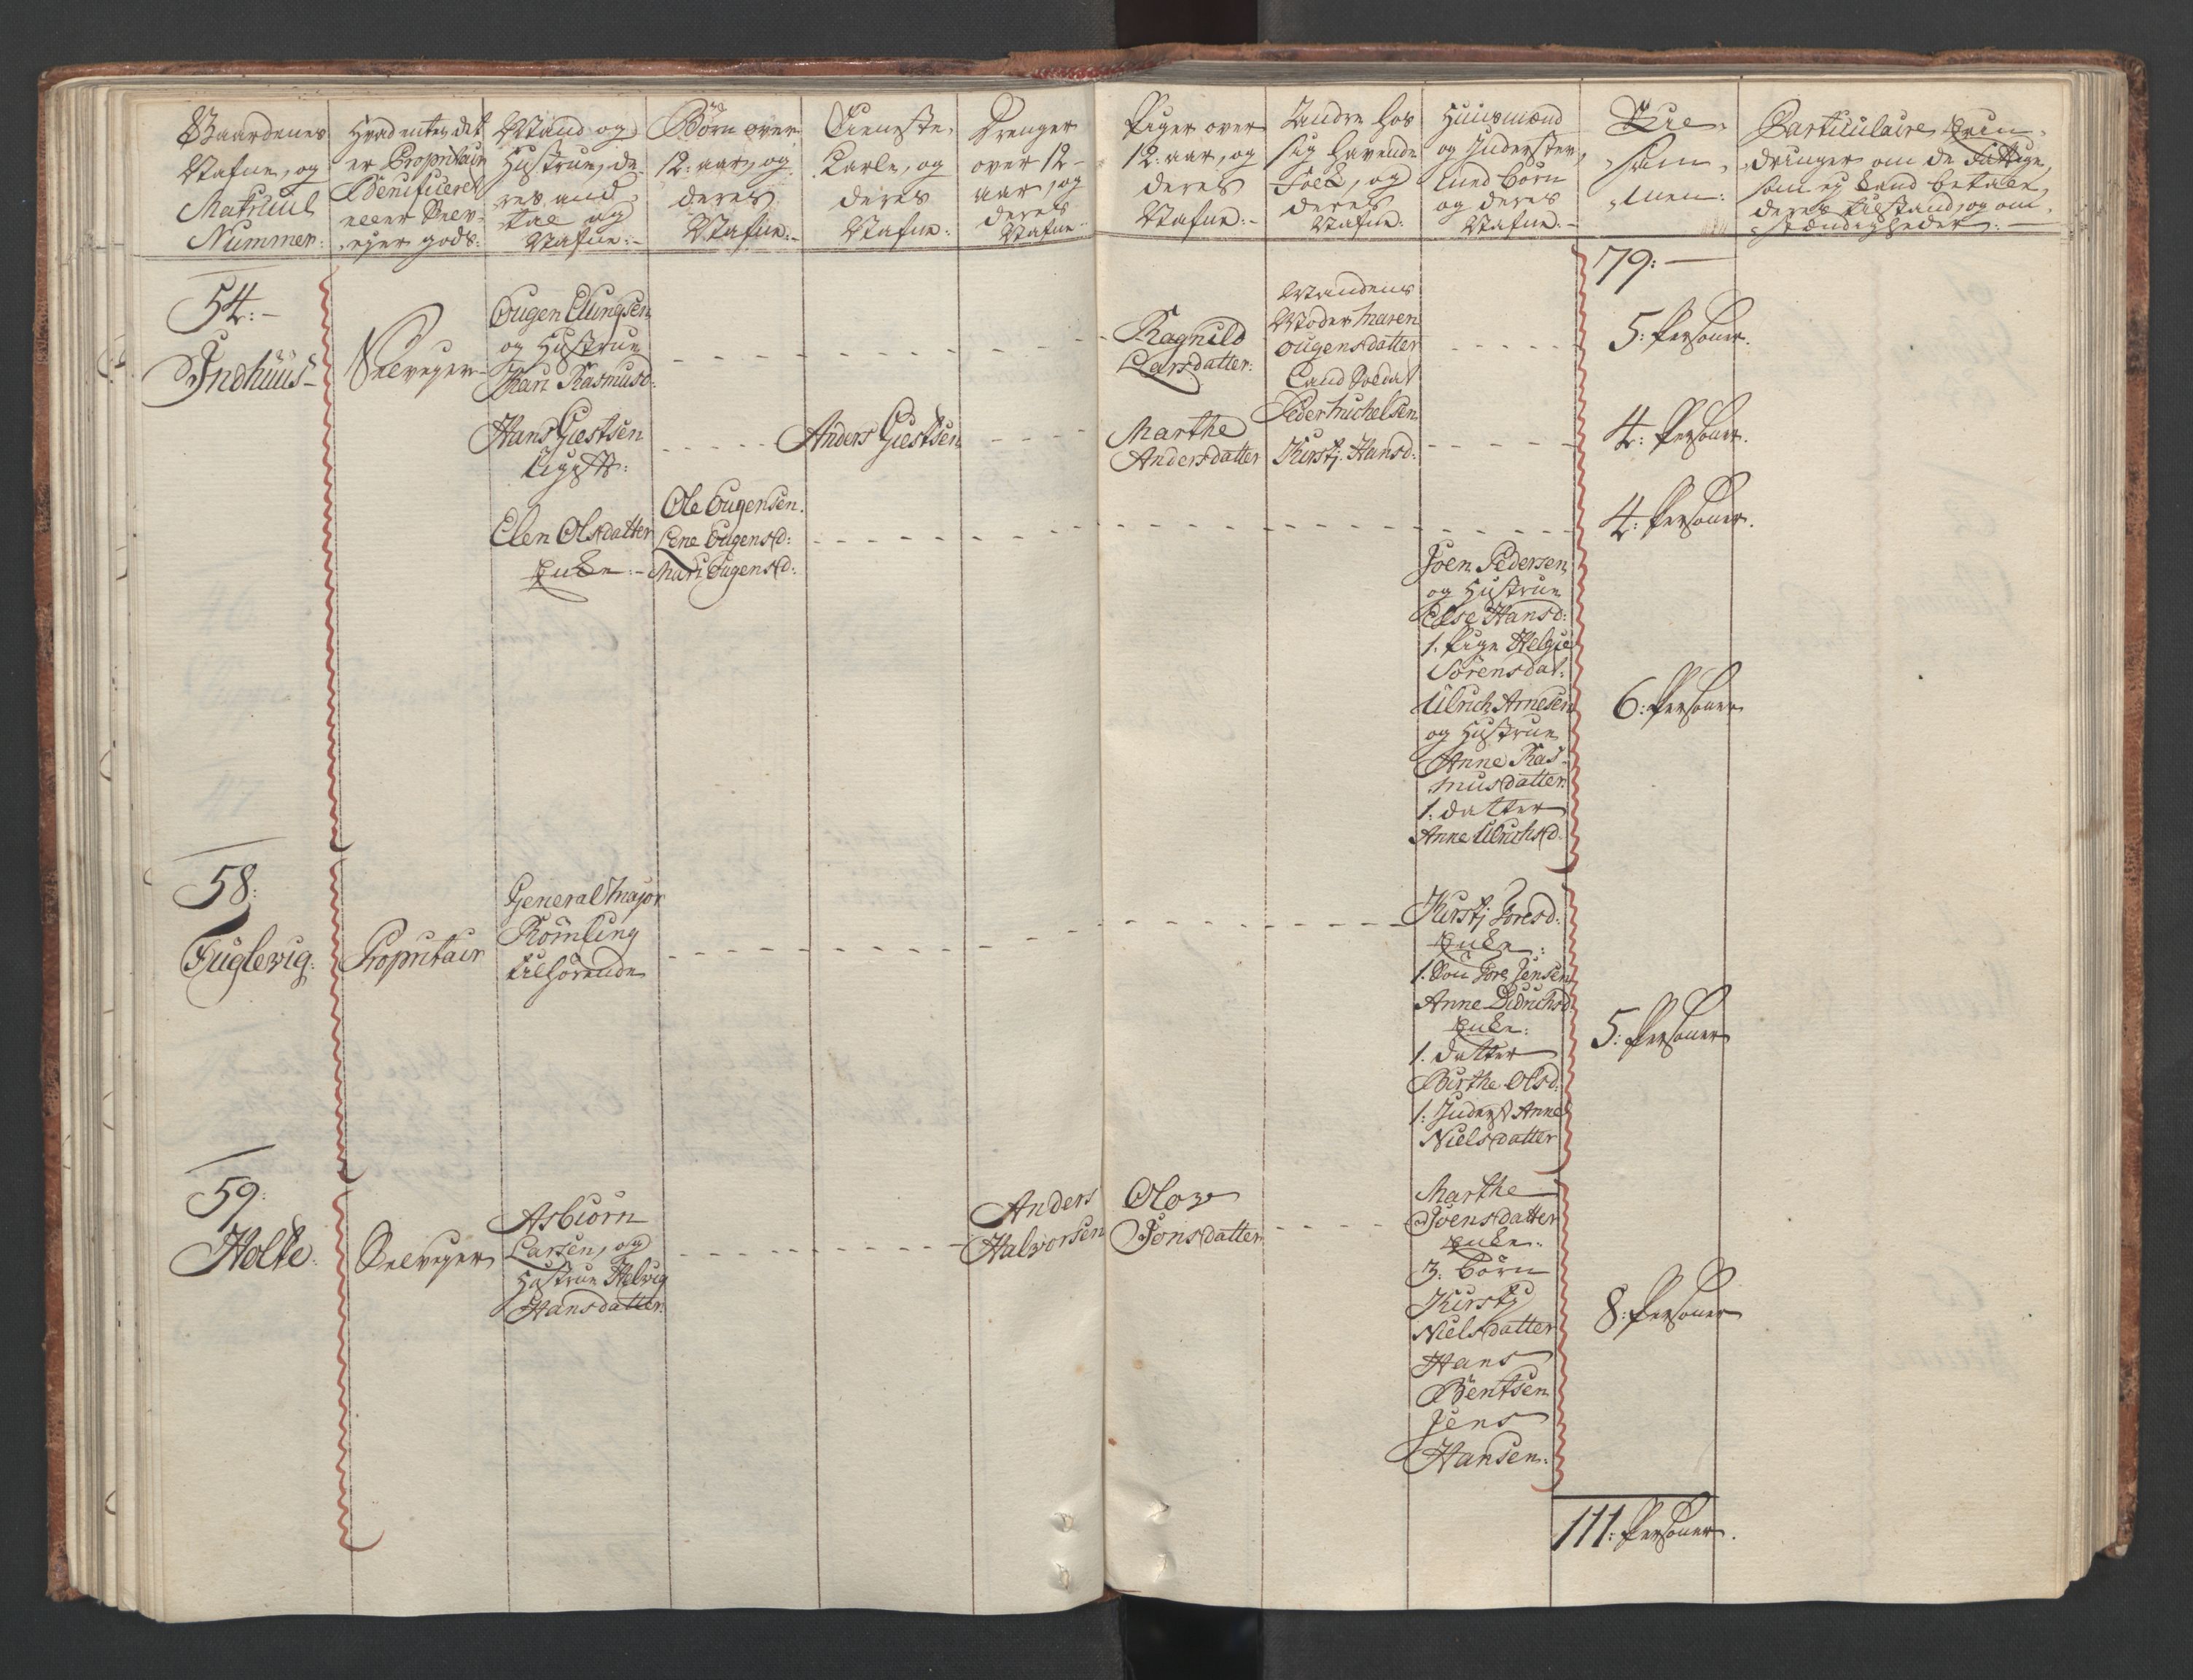 Gaardenes
Nafne, og
Matricul
Nummer:
Hvad enten det
er Propritair
Benificeret
eller Selv-
ejer gods:
Mand og
Hustrue, de-
res and-
tal og
Nafne:-
Børn over
12: aar, og
deres
Nafne:-
Tieneste
Karle, og
deres
Nafne:
Drenger
over 12-
aar, og
deres
Nafne:
Piger over
12: aar, og
deres
Nafne:-
Andre hos
sig havende
Folk, og
deres
Nafne:
Huusmænd
og Inderster,
med børn
og deres
Nafne:-
Til-
sam-
men:
Particulaire Erin-
dringer om de Fattige,
som ej kand betale,
deres tilstand, og om-
stændigheder:-
79:-
54:-
Indhuus-
Selvejer-
Ougen Ellingsen
og Hustrue
Kari Rasmusd:
Ragnild
Larsdatter:
Mandens
Moder Maren
Ougensdatter
Land Soldat
Peder Michelsen
5: Personer.
Hans Giestsen
Ligft:
Anders Giestsen
Marthe
Andersdatter
Kirstj Hansd:
4: Personer.
Elen Olsdatter
Enke:-
Ole Ougensen.
Lene Ougensd:
Mari Ougensd:
4: Personer.
Joen Pedersen
og Hustrue
Else Hansd:
1. Pige Helgie
Sørensdat:
Ulrich Arnesen
og Hustrue
Anne Ras-
musdatter
1. datter
Anne Ulrichsd:
6: Personer
58:
Fuglevig:
Propritair
General Major
Rømling
tilhørende
Kirstj Joresd:
Enke:
1. Søn Jore Jensen
Anne Didrichsd:
Enke:
1. datter
Birthe Olsd:
1: Inderst Anne
Nielsdatter
5: Personer
59:
Holte.
Selvejer
Asbiørn
Larsen, og
Hustrue Helvig
Hansdatter.
Anders
Halvorsen
Olov
Jonsdatter
Marthe
Joensdatter
Enke:
3: børn
Kirstj
Nielsdatter
Hans
Bentsen
Jens
Hansen:
8: Personer
111: Personer.